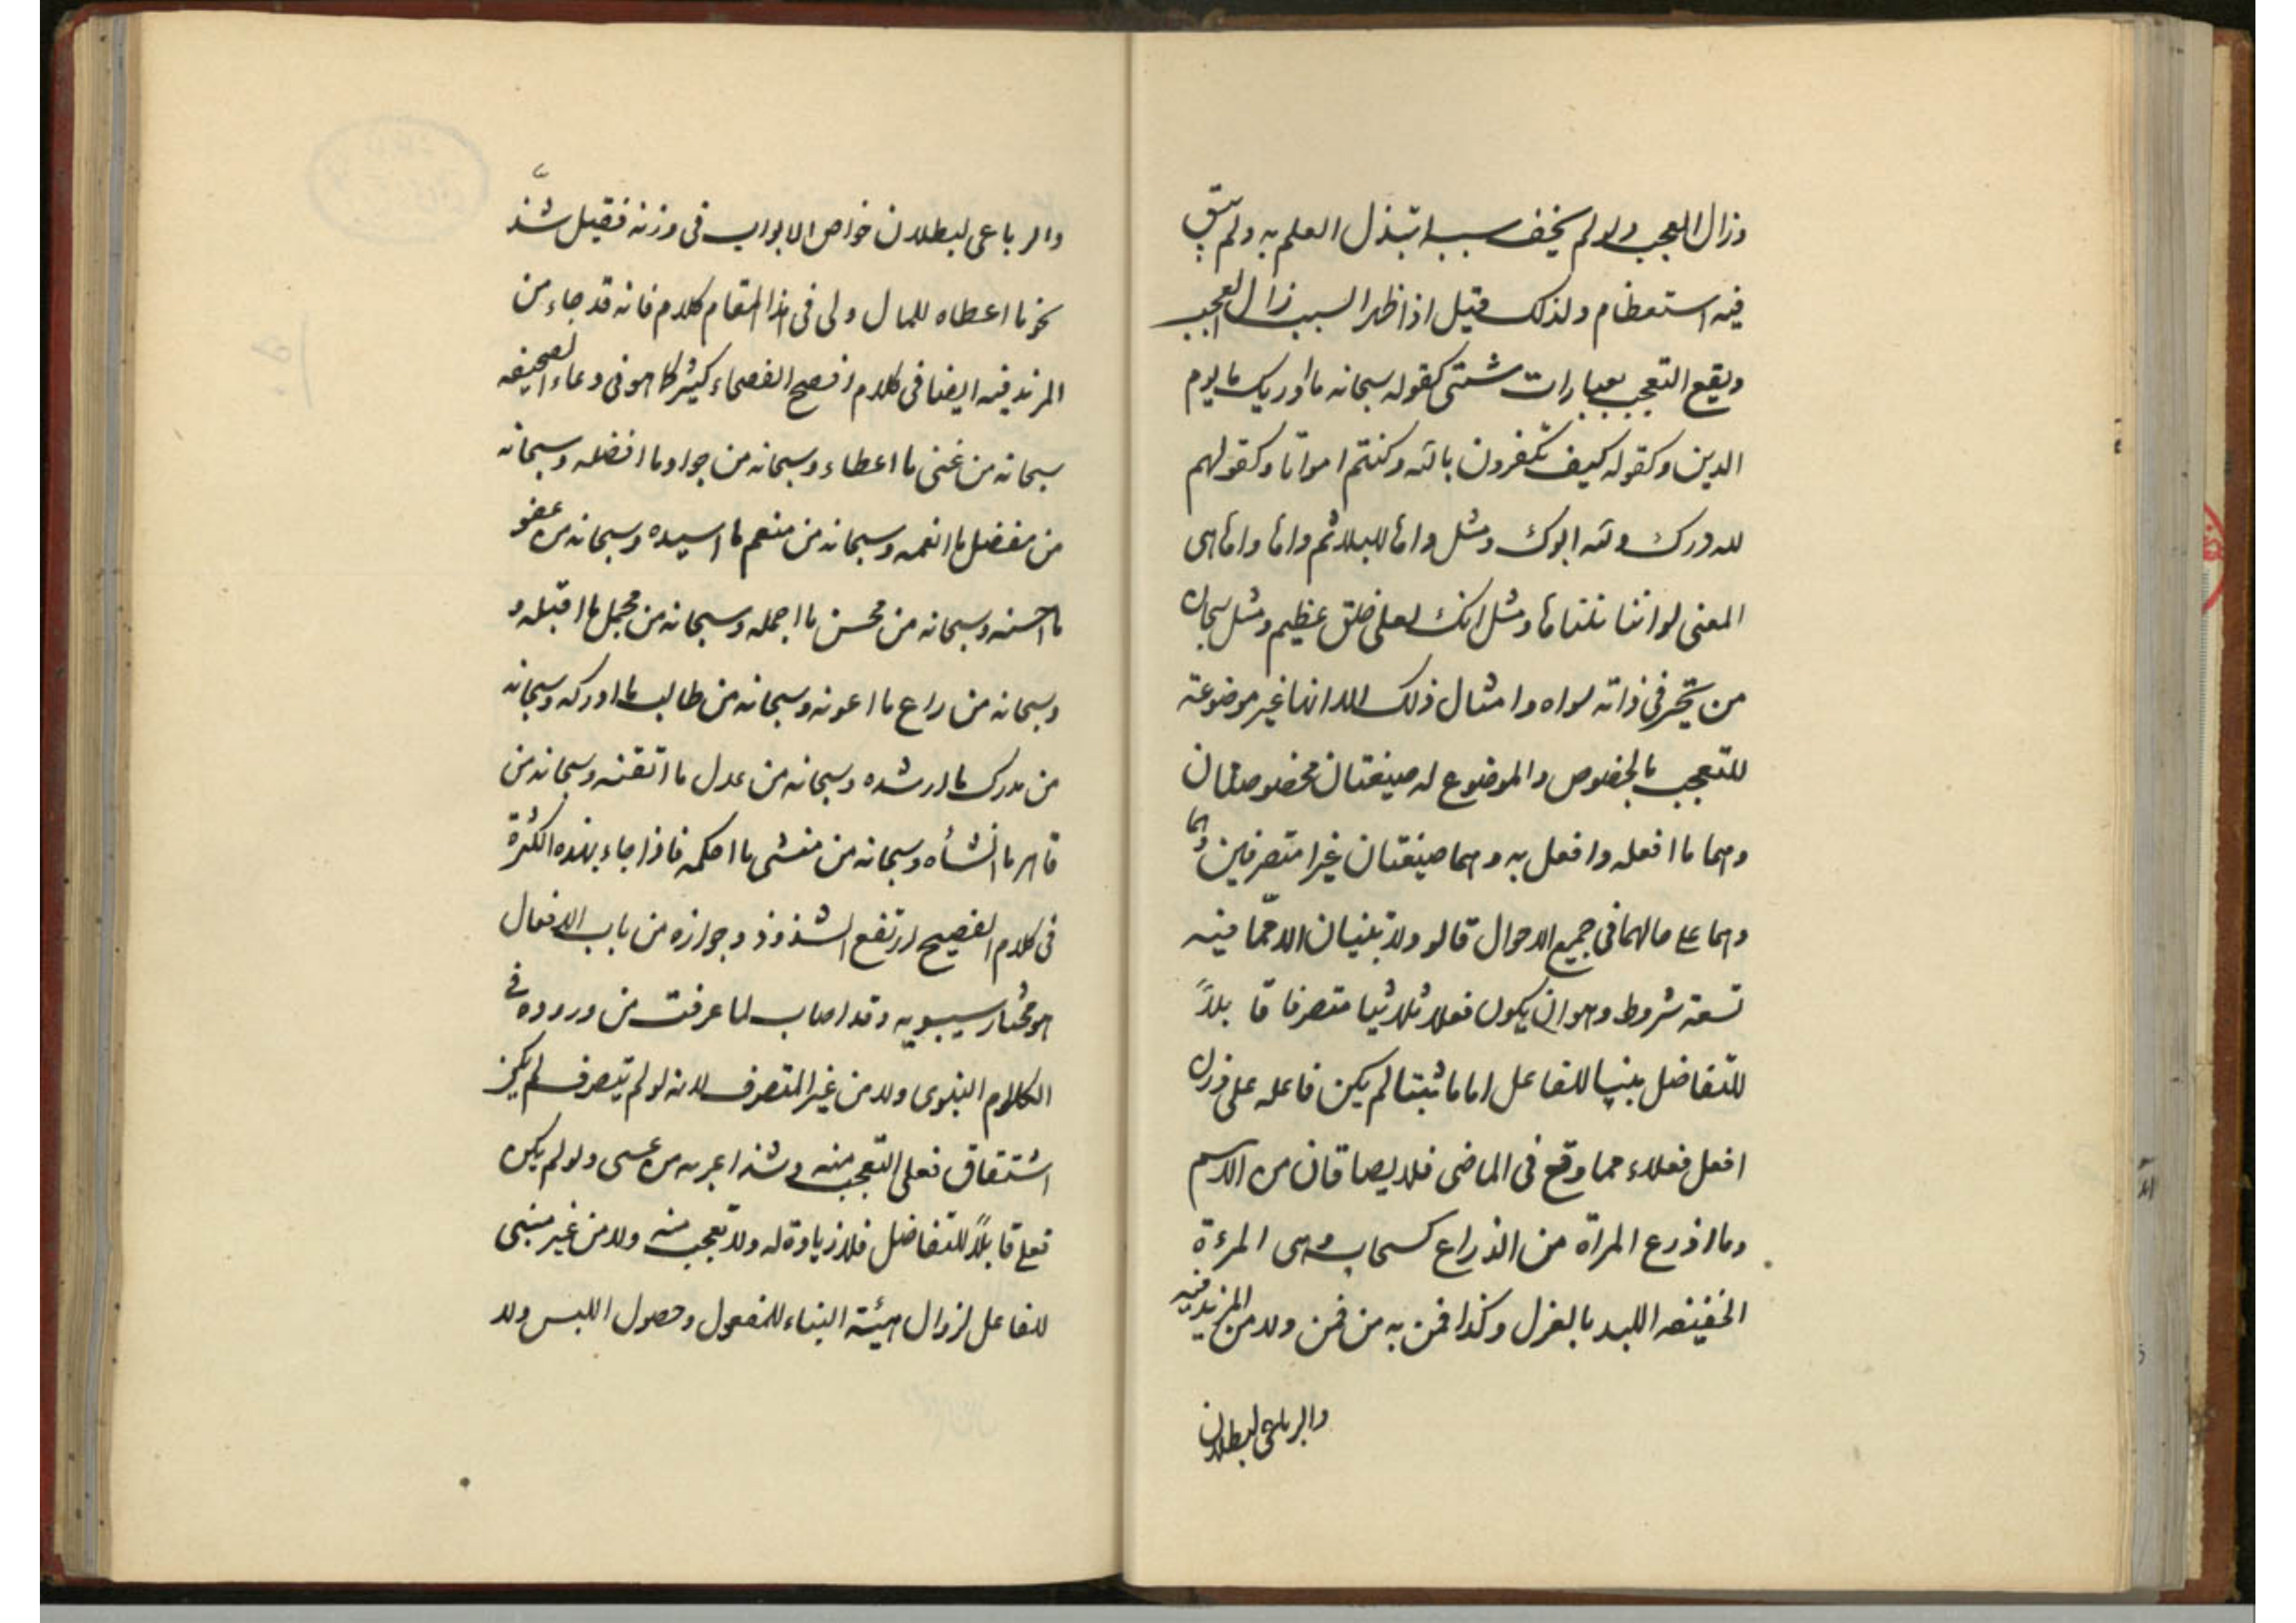 وزال العجب ولو لم يخف سببه ابتذل العلم به ولم يبق
فيه استعظام ولذلك قيل اذا ظهر السبب زال العجب
ويقع التعجب بعبارات شتى كقوله سبحانه ما ادريك ما يوم
الدين وكقوله كيف تكفرون بالله وكنتم امواتا وكقولهم
لله درك ولله ابوك ومثل واها لليلا ثم واها واها هى
المعنى لو اننا نلناها ومثل انك لعلى خلق عظيم ومثل سبحان
من تحير فى ذاته سواه وامثال ذلك الا انها غير موضوعة
للتعجب بالخصوص والموضوع له صيغتان مخصوصتان
وهما ما افعله وافعل به وهما صيغتان غير متصرفين
وهما على حالهما فى جميع الاحوال قالوا ولا تبنيان الا مما فيه
تسعة شروط وهو ان يكون فعلا ثلاثيا متصرفا قابلاً
للتفاضل بنيا للفاعل اما مثبتا لم يكن فاعله على وزن
افعل فعلاء مما وقع فى الماضى فلا يصاقان من الاسم
وما اذرع المراة من الذراع كسحاب وهى المرءة
الخفيفه اليد بالغزل وكذا قمن به من قمن ولا من المزيد فيه
والرباعى لبطلان
والرباعى لبطلان خواص الابواب فى وزنه فقيل شذّ
نحو ما اعطاه للمال ولى فى هذا المقام كلام فانه قد جاء من
المزيد فيه ايضا فى كلام افصح الفصحاء كثيرا كما هو فى دعاء الصحيفه
سبحانه من غنى ما اعطاه وسبحانه من جواد ما افضله وسبحانه
من مفضل ما انعمه وسبحانه من منعم ما اسيده وسبحانه من عفو
ما احسنه وسبحانه من محسن ما اجمله وسبحانه من مجمل ما اقبله و
وسبحانه من راع ما اعونه وسبحانه من طالب ما ادركه وسبحانه
من مدرك ما ارشده وسبحانه من عدل ما اتقنه وسبحانه من
قاهر ما انشأه وسبحانه من منشى ما احكمه فاذا جاء بهذه الكثرة
فى كلام الفصيح ارتفع الشذوذ وجوازه من باب الافعال
هو مختار سيبويه وقد اصاب لما عرفت من وروده فى
الكلام النبوى ولا من غير المتصرف لانه لو لم يتصرف لم يكن
اشتقاق فعلى التعجب منه وشذ اعر به من عسى ولو لم يكن
فعل قابلاً للتفاضل فلا زيادة له ولا تعجب منه ولا من غير مبنى
للفاعل لزوال هيئة البناء للمفعول وحصول اللبس ولا